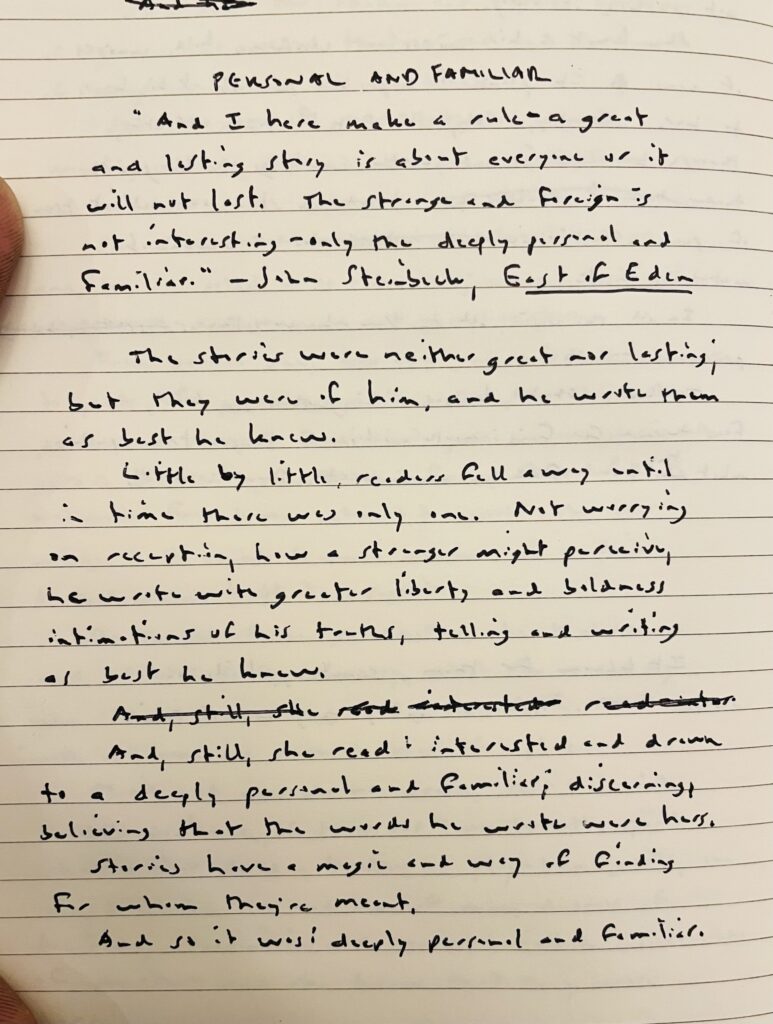 And he
PERSONAL AND FAMILIAR
"And I here make a rule—a great
and lasting story is about everyone or it
will not last. The strange and foreign is
not interesting—only the deeply personal and
familiar." — John Steinbeck, East of Eden
The stories were neither great nor lasting;
but they were of him, and he wrote them
as best he knew.
Little by little, readers fell away until
in time there was only one. Not worrying
on reception, how a stranger might perceive,
he wrote with greater liberty and boldness
intimations of his truths, telling and writing
as best he knew.
And, still, she read interested
And, still, she read: interested and drawn
to a deeply personal and familiar; discerning,
believing that the words he wrote were hers.
Stories have a magic and way of finding
for whom they're meant.
And so it was: deeply personal and familiar.